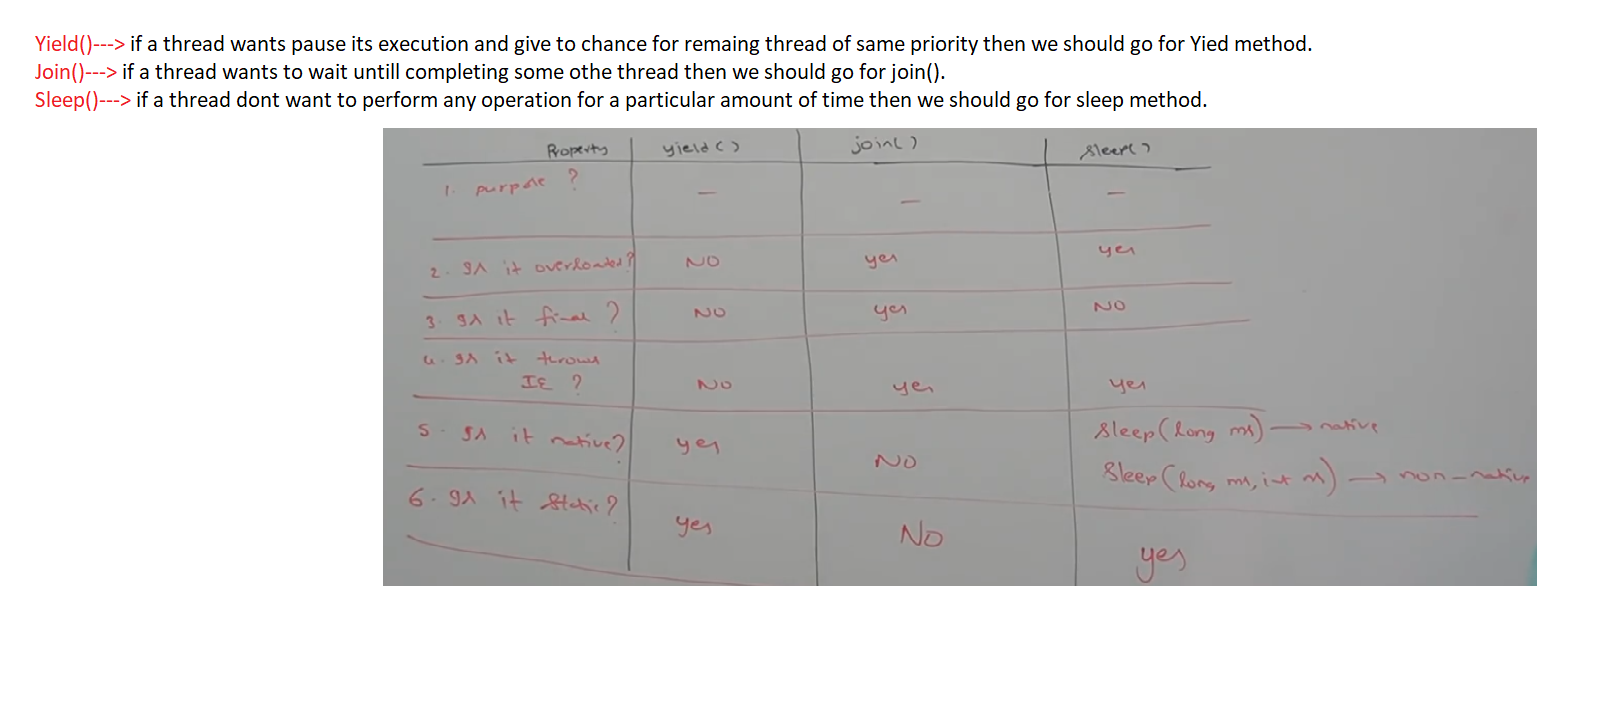 Yield()---> if a thread wants pause its execution and give to chance for remaing thread of same priority then we should go for Yied method.
Join()---> if a thread wants to wait untill completing some othe thread then we should go for join().
Sleep()---> if a thread dont want to perform any operation for a particular amount of time then we should go for sleep method.
Property yield() join() sleep()
1. purpose ? — — —
2. Is it overloaded? NO yes yes
3. Is it final ? NO yes NO
4. Is it throws
IE ? NO yes yes
5. Is it native? yes NO sleep(long ms) → native
sleep(long ms, int ns) → non-native
6. Is it static? yes NO yes